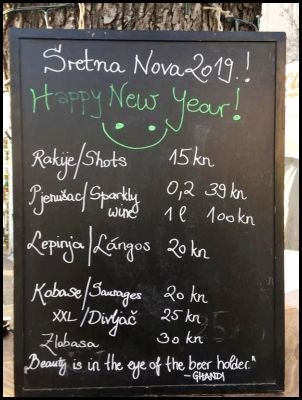 Sretna Nova 2019.!
Happy New Year!
Rakije/Shots 15 kn
Pjenušac/Sparkly 0,2 39 kn
wine 1 l 100 kn
Lepinja/Lángos 20 kn
Kobase/Sausages 20 kn
XXL/Divljač 25 kn
Zlobasa 30 kn
„Beauty is in the eye of the beer holder."
- GHANDI